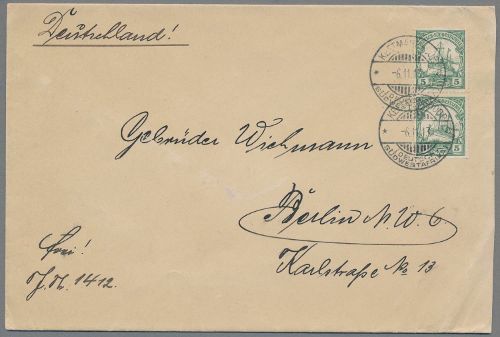 Deutschland!
Gebrüder Wichmann
Berlin N.W. 6.
Karlstraße № 13
frei!
J.N. 1412.
5
5
-6.11.
-6.11.
SÜDWESTAFRIKA